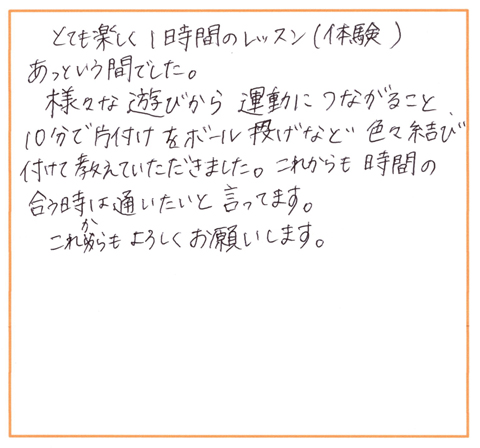 とても楽しく1時間のレッスン(体験)
あっという間でした。
様々な遊びから運動につながること、
10分で片付けをボール投げなど色々結び
付けて教えていただきました。これからも時間の
合う時は通いたいと言ってます。
これからもよろしくお願いします。